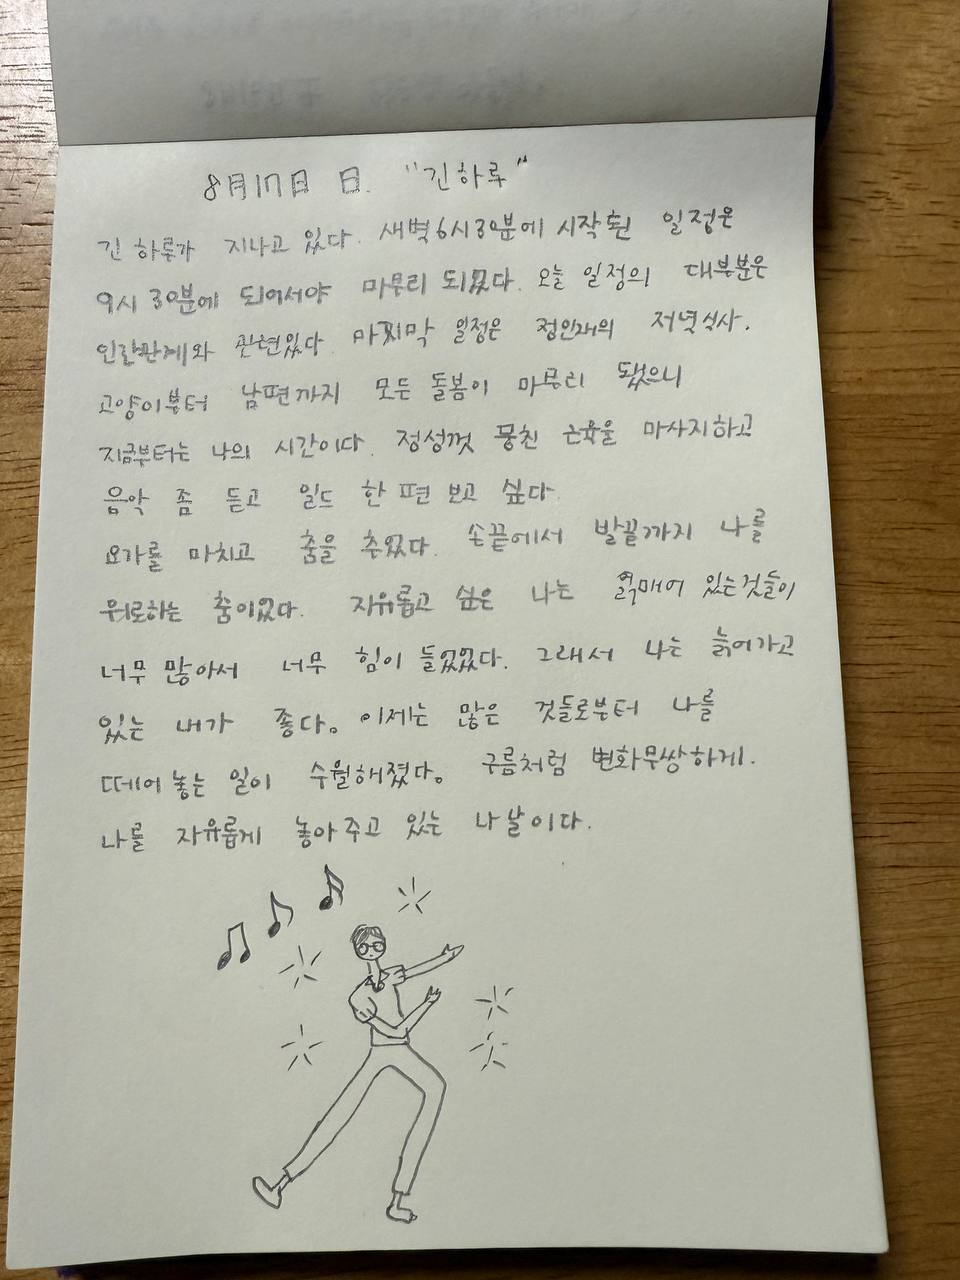 8月17日 日. "긴하루"
긴 하루가 지나고 있다. 새벽 6시 30분에 시작된 일정은
9시 30분에 되어서야 마무리 되었다. 오늘 일정의 대부분은
인간관계와 관련있다. 마지막 일정은 정인재의 저녁식사.
고양이부터 남편까지 모든 돌봄이 마무리 됐으니
지금부터는 나의 시간이다. 정성껏 뭉친 근육을 마사지하고
음악 좀 듣고 일드 한 편 보고 싶다.
요가를 마치고 춤을 추었다. 손끝에서 발끝까지 나를
위로하는 춤이었다. 자유롭고 싶은 나는 얽매어 있는것들이
너무 많아서 너무 힘이 들었었다. 그래서 나는 늙어가고
있는 내가 좋다. 이제는 많은 것들로부터 나를
떼어 놓는 일이 수월해졌다. 구름처럼 변화무쌍하게.
나를 자유롭게 놓아주고 있는 나날이다.